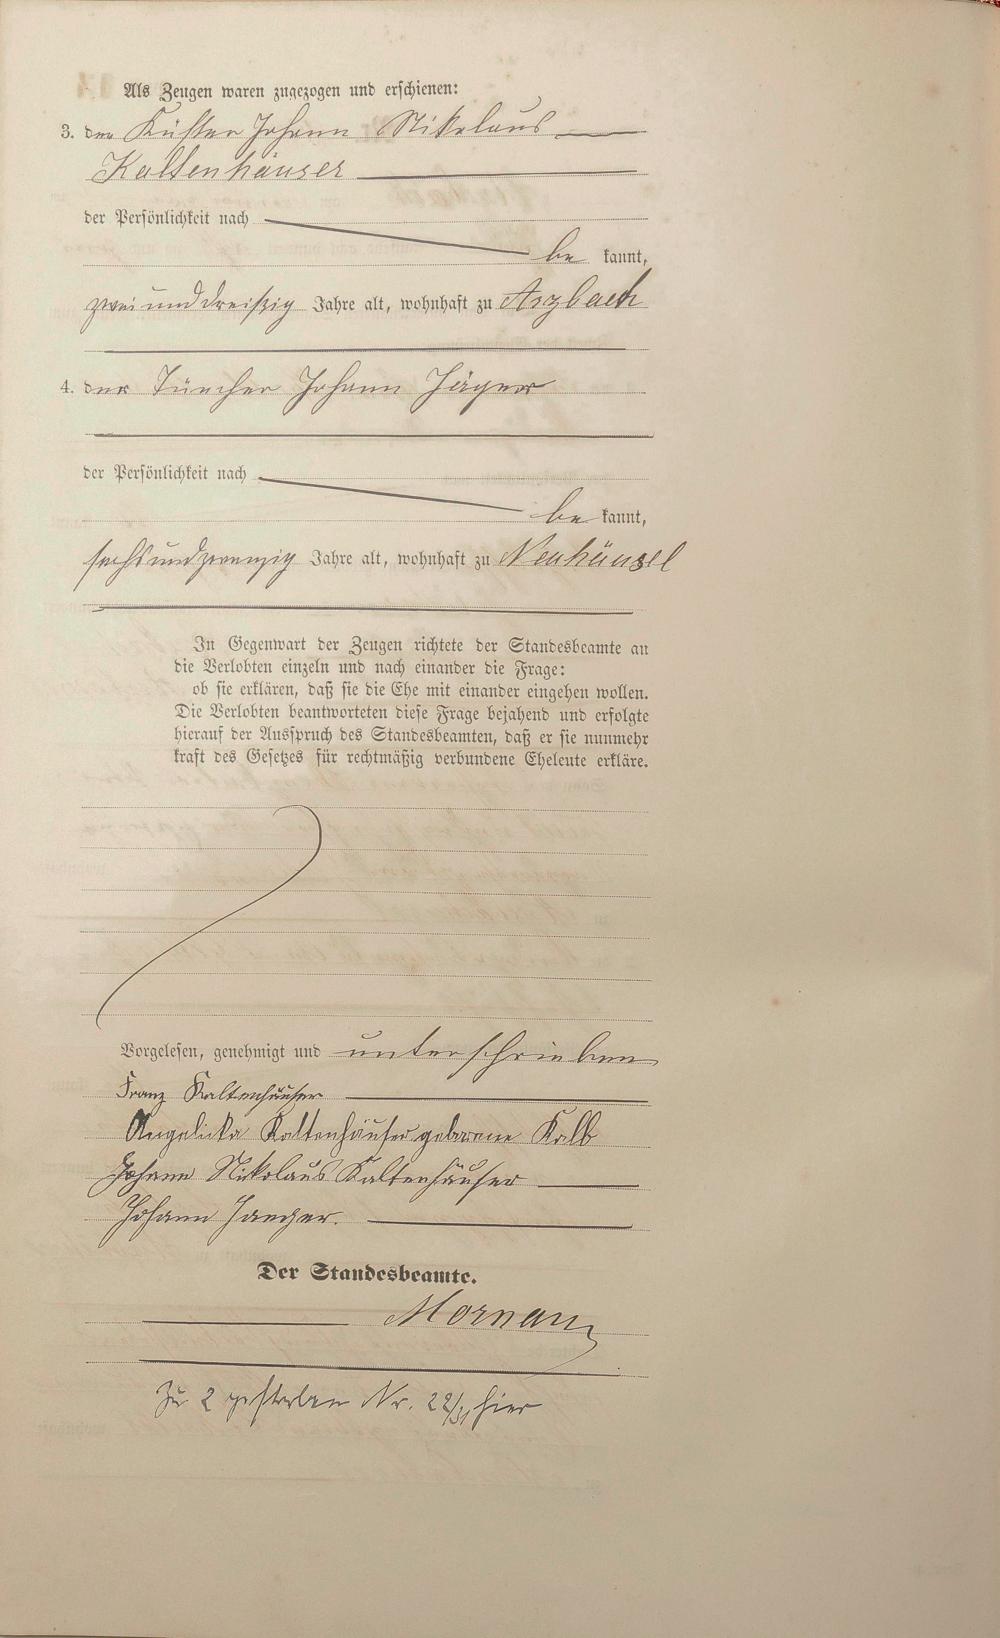 Als Zeugen waren zugezogen und erschienen:
3. der Küster Johann Nikolaus
Kaltenhäuser
der Persönlichkeit nach
be kannt,
zweiunddreißig Jahre alt, wohnhaft zu Arzbach
4. der Tüncher Johann Jäger
der Persönlichkeit nach
be kannt,
sechsundzwanzig Jahre alt, wohnhaft zu Neuhäusel
In Gegenwart der Zeugen richtete der Standesbeamte an
die Verlobten einzeln und nach einander die Frage:
ob sie erklären, daß sie die Ehe mit einander eingehen wollen.
Die Verlobten beantworteten diese Frage bejahend und erfolgte
hierauf der Ausspruch des Standesbeamten, daß er sie nunmehr
kraft des Gesetzes für rechtmäßig verbundene Eheleute erkläre.
Vorgelesen, genehmigt und unterschrieben
Franz Kaltenhäuser
Angelicka Kaltenhäuser geborene Kalb
Johann Nikolaus Kaltenhäuser
Johann Jaeger.
Der Standesbeamte.
Zu 2 gestorben Nr. 22/31 hier